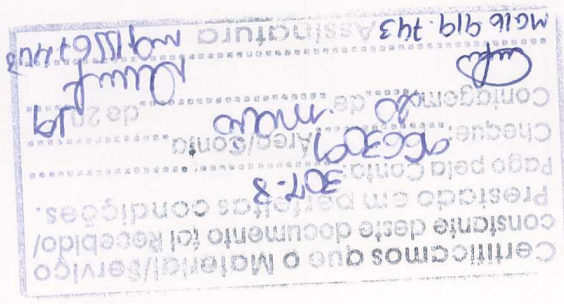 Certificamos que o Material/Serviço
constante deste documento foi Recebido/
Prestado em perfeitas condições.
Pago pela Conta: 307-8
Cheque: 966309 Área/Conta
Contagem 20 de maio de 2019
MG16 919.743 Assinatura